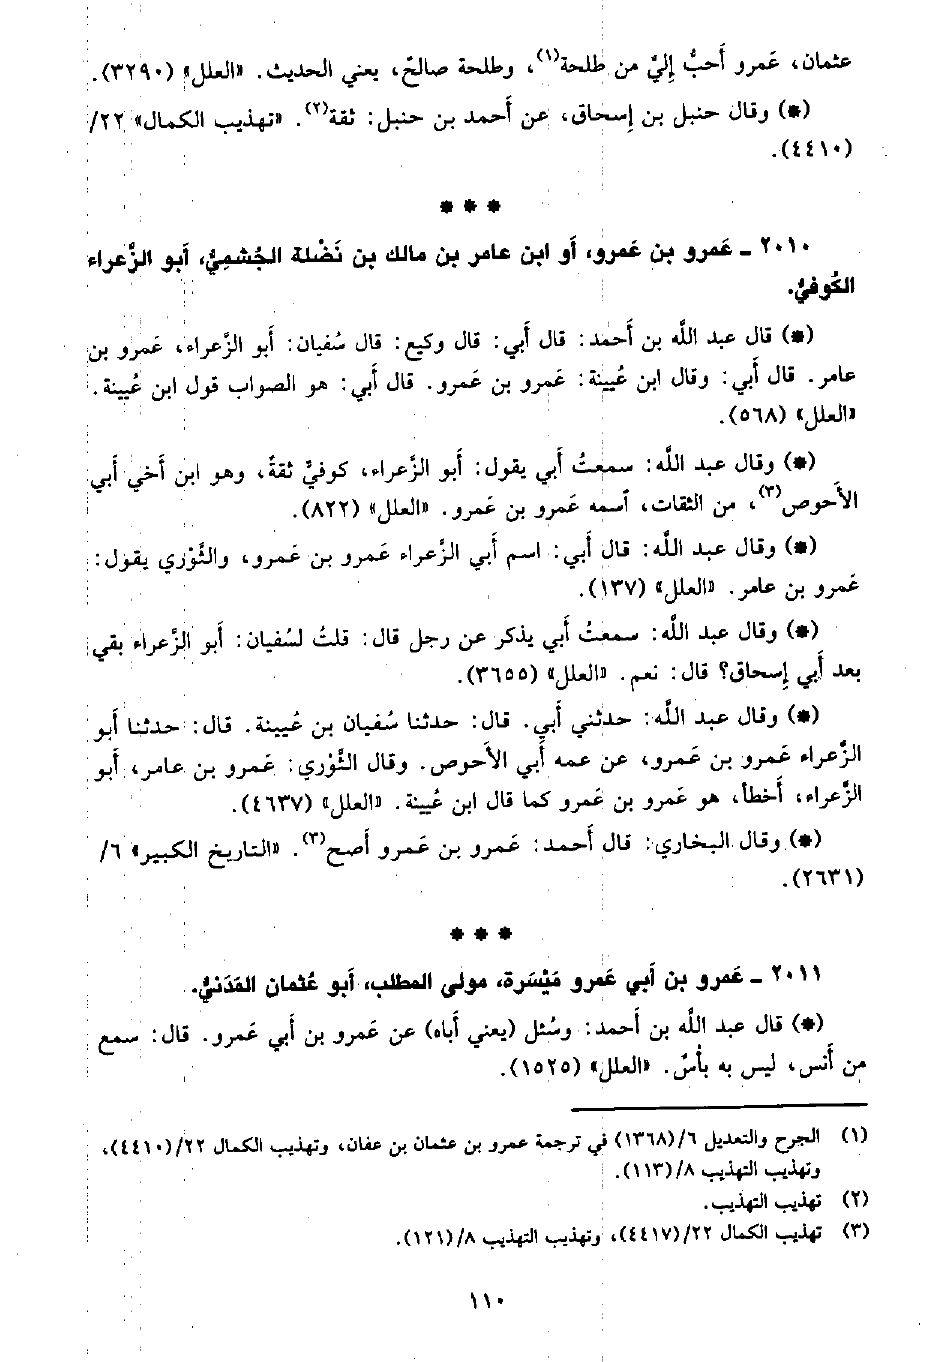 عثمان، عَمرو أَحبُّ إِليَّ من طلحة(١)، وطلحة صالحٌ، يعني الحديث. «العلل» (٣٢٩٠).
(*) وقال حنبل بن إِسحاق، عن أَحمد بن حنبل: ثقة(٢). «تهذيب الكمال» ٢٢/
(٤٤١٠).
* * *
٢٠١٠ ـ عَمرو بن عَمرو، أَو ابن عامر بن مالك بن نَضْلة الجُشميُّ، أَبو الزَّعراء
الكُوفيُّ.
(*) قال عبد اللَّه بن أَحمد: قال أَبي: قال وكيع: قال سُفيان: أَبو الزَّعراء، عَمرو بن
عامر. قال أَبي: وقال ابن عُيينة: عَمرو بن عَمرو. قال أَبي: هو الصواب قول ابن عُيينة.
«العلل» (٥٦٨).
(*) وقال عبد اللَّه: سمعتُ أَبي يقول: أَبو الزَّعراء، كوفيٌّ ثقةٌ، وهو ابن أَخي أَبي
الأَحوص(٣)، من الثقات، أسمه عَمرو بن عَمرو. «العلل» (٨٢٢).
(*) وقال عبد اللَّه: قال أَبي: اسم أَبي الزَّعراء عَمرو بن عَمرو، والثَّوْري يقول:
عَمرو بن عامر. «العلل» (١٣٧).
(*) وقال عبد اللَّه: سمعتُ أَبي يذكر عن رجل قال: قلتُ لسُفيان: أَبو الزَّعراء بقي
بعد أَبي إِسحاق؟ قال: نعم. «العلل» (٣٦٥٥).
(*) وقال عبد اللَّه: حدثني أَبي. قال: حدثنا سُفيان بن عُيينة. قال: حدثنا أَبو
الزَّعراء عَمرو بن عَمرو، عن عمه أَبي الأَحوص. وقال الثَّوْري: عَمرو بن عامر، أَبو
الزَّعراء، أَخطأ، هو عَمرو بن عَمرو كما قال ابن عُيينة. «العلل» (٤٦٣٧).
(*) وقال البخاري: قال أَحمد: عَمرو بن عَمرو أَصح(٣). «التاريخ الكبير» ٦/
(٢٦٣١).
* * *
٢٠١١ ـ عَمرو بن أَبي عَمرو مَيْسرة، مولى المطلب، أَبو عُثمان المَدَنيُّ.
(*) قال عبد اللَّه بن أَحمد: وسُئل (يعني أَباه) عن عَمرو بن أَبي عَمرو. قال: سمع
من أَنس، ليس به بأْسٌ. «العلل» (١٥٢٥).
(١) الجرح والتعديل ٦/(١٣٦٨) في ترجمة عمرو بن عثمان بن عفان، وتهذيب الكمال ٢٢/(٤٤١٠)،
وتهذيب التهذيب ٨/(١١٣).
(٢) تهذيب التهذيب.
(٣) تهذيب الكمال ٢٢/(٤٤١٧)، وتهذيب التهذيب ٨/(١٢١).
١١٠